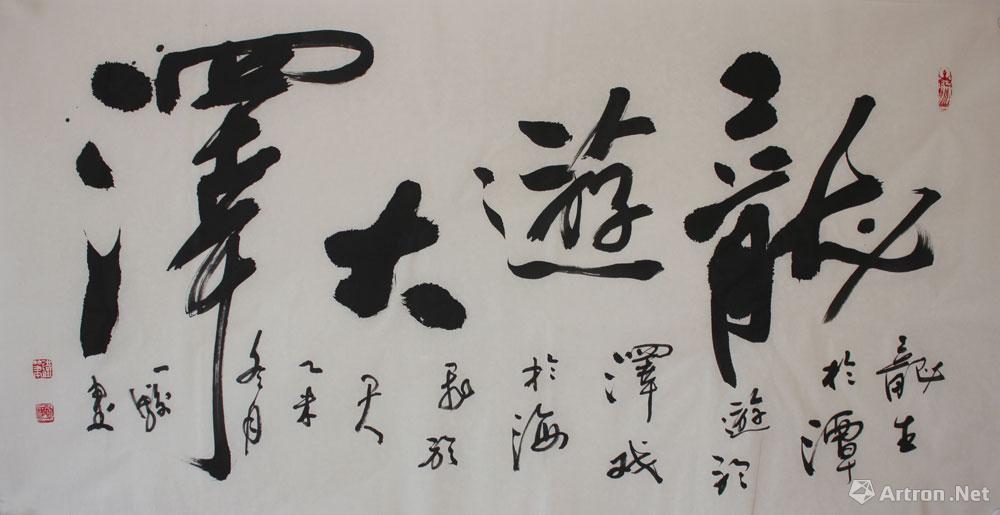 龍遊大澤
龍生
於潭
遊於
澤戏
於海
乙未
冬月
一駿
書
Artron.Net